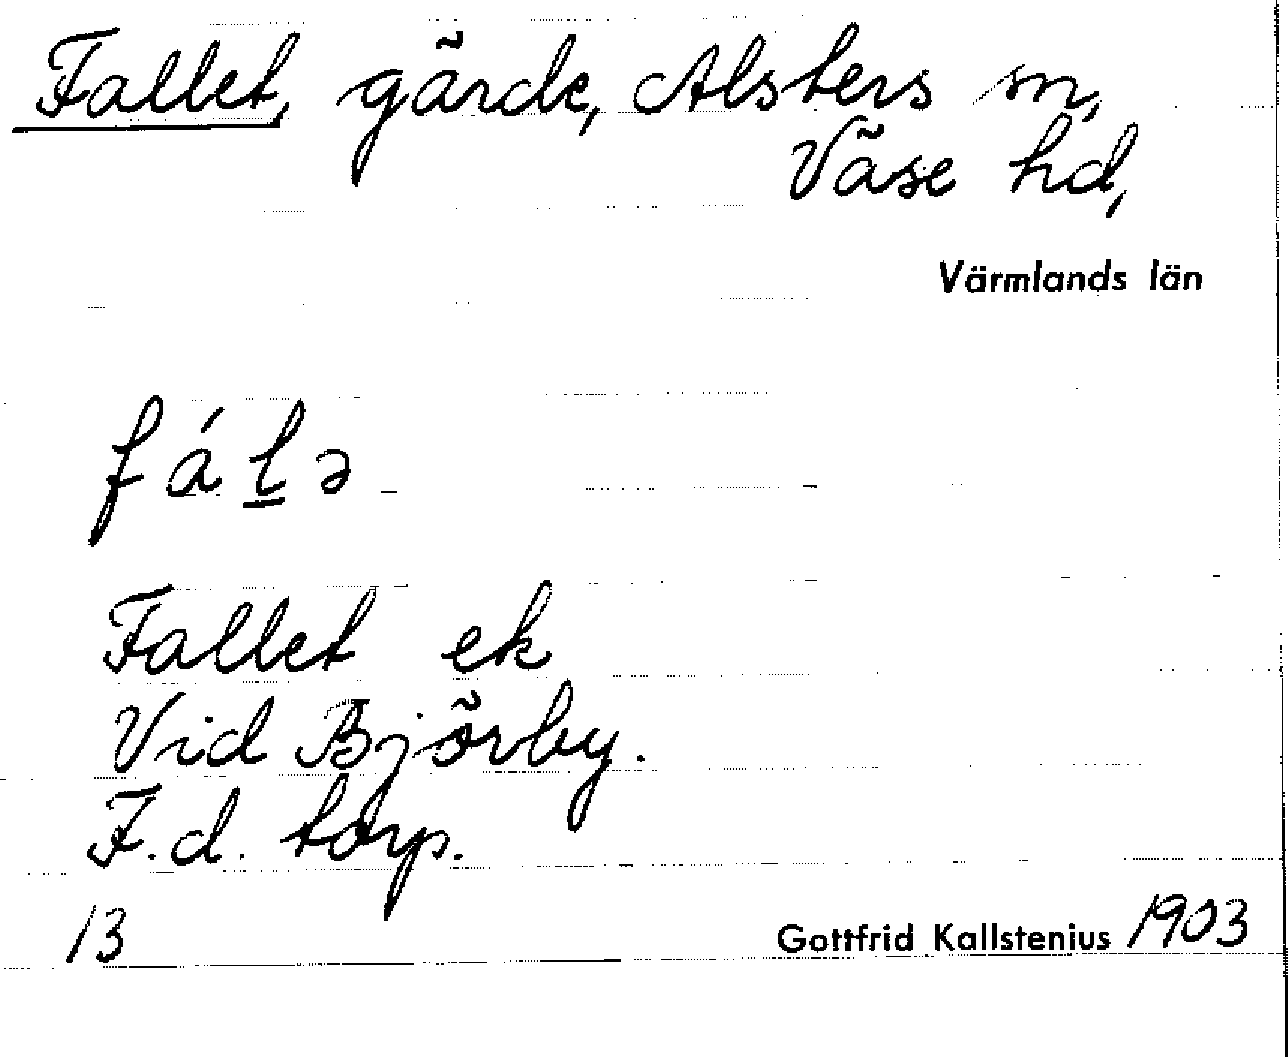 Fallet, gärde, Alsters sn,
Väse hd,
Värmlands län
fálə
Fallet ek
Vid Björby.
F.d. torp.
13 Gottfrid Kallstenius 1903